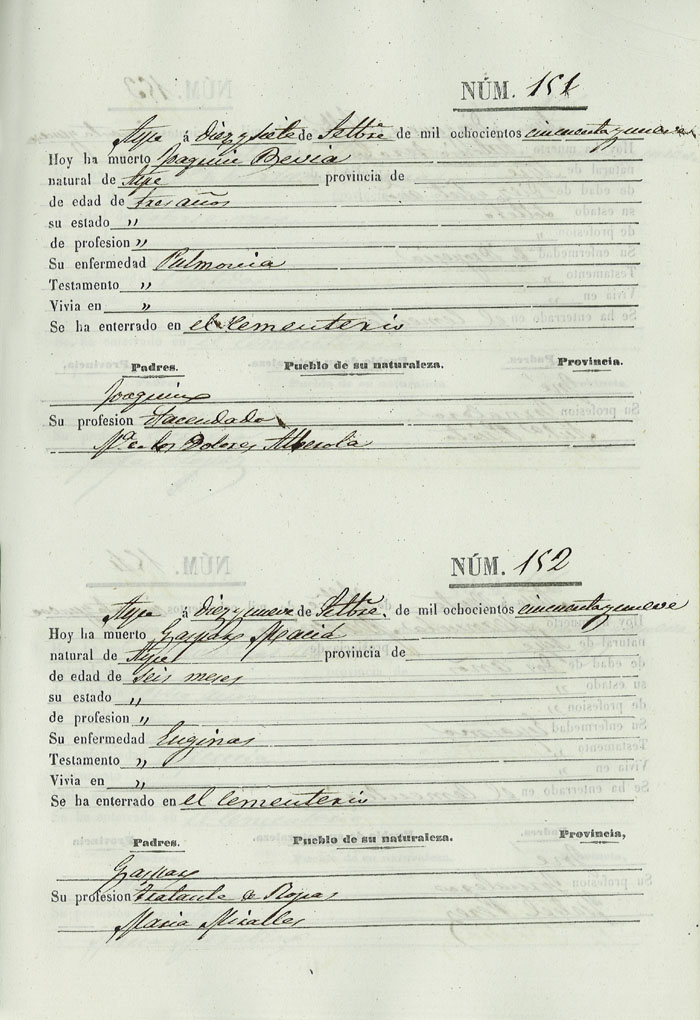 NÚM. 151
Aspe á diez y siete de Setbre de mil ochocientos cincuenta y nueve
Hoy ha muerto Joaquin Bevia
natural de Aspe provincia de
de edad de tres años
su estado „
de profesion „
Su enfermedad Pulmonia
Testamento „
Vivia en „
Se ha enterrado en el Cementerio
Padres. Pueblo de su naturaleza. Provincia.
Joaquin
Su profesion Hacendado
Mª de los Dolores Alberola
NÚM. 152
Aspe á diez y nueve de Setbre. de mil ochocientos cincuenta y nueve
Hoy ha muerto Gaspar Maciá
natural de Aspe provincia de
de edad de seis meses
su estado „
de profesion „
Su enfermedad Enginas
Testamento „
Vivia en „
Se ha enterrado en el Cementerio
Padres. Pueblo de su naturaleza. Provincia,
Gaspar
Su profesion tratante de Ropas
Maria Miralles